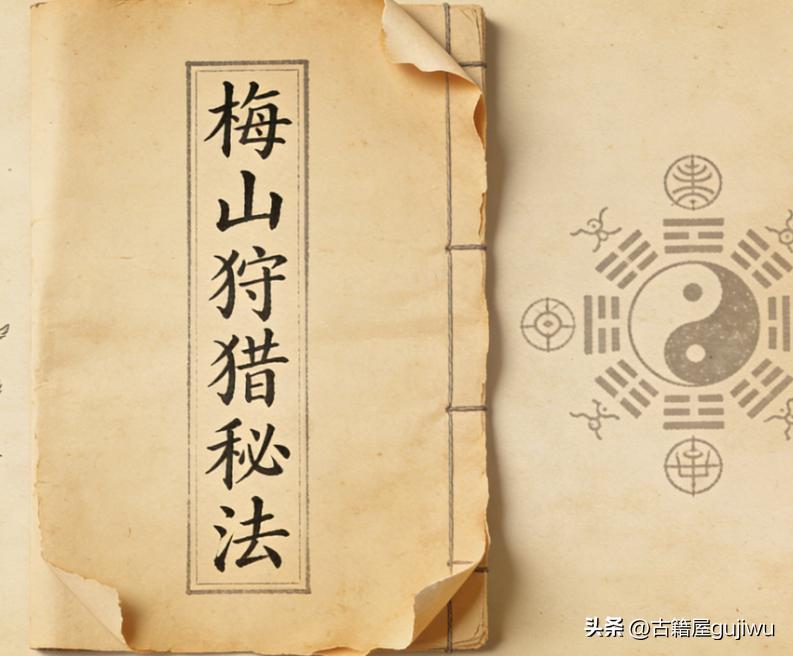 梅山狩猎秘法
头条 @古籍屋gujiwu